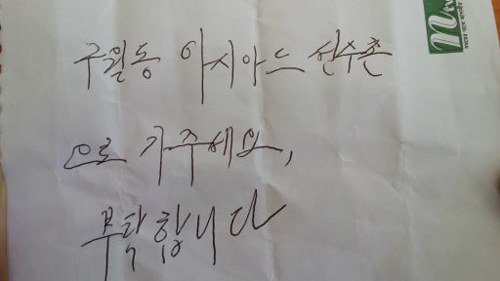 구월동 아시아드 선수촌
으로 가주세요,
부탁합니다